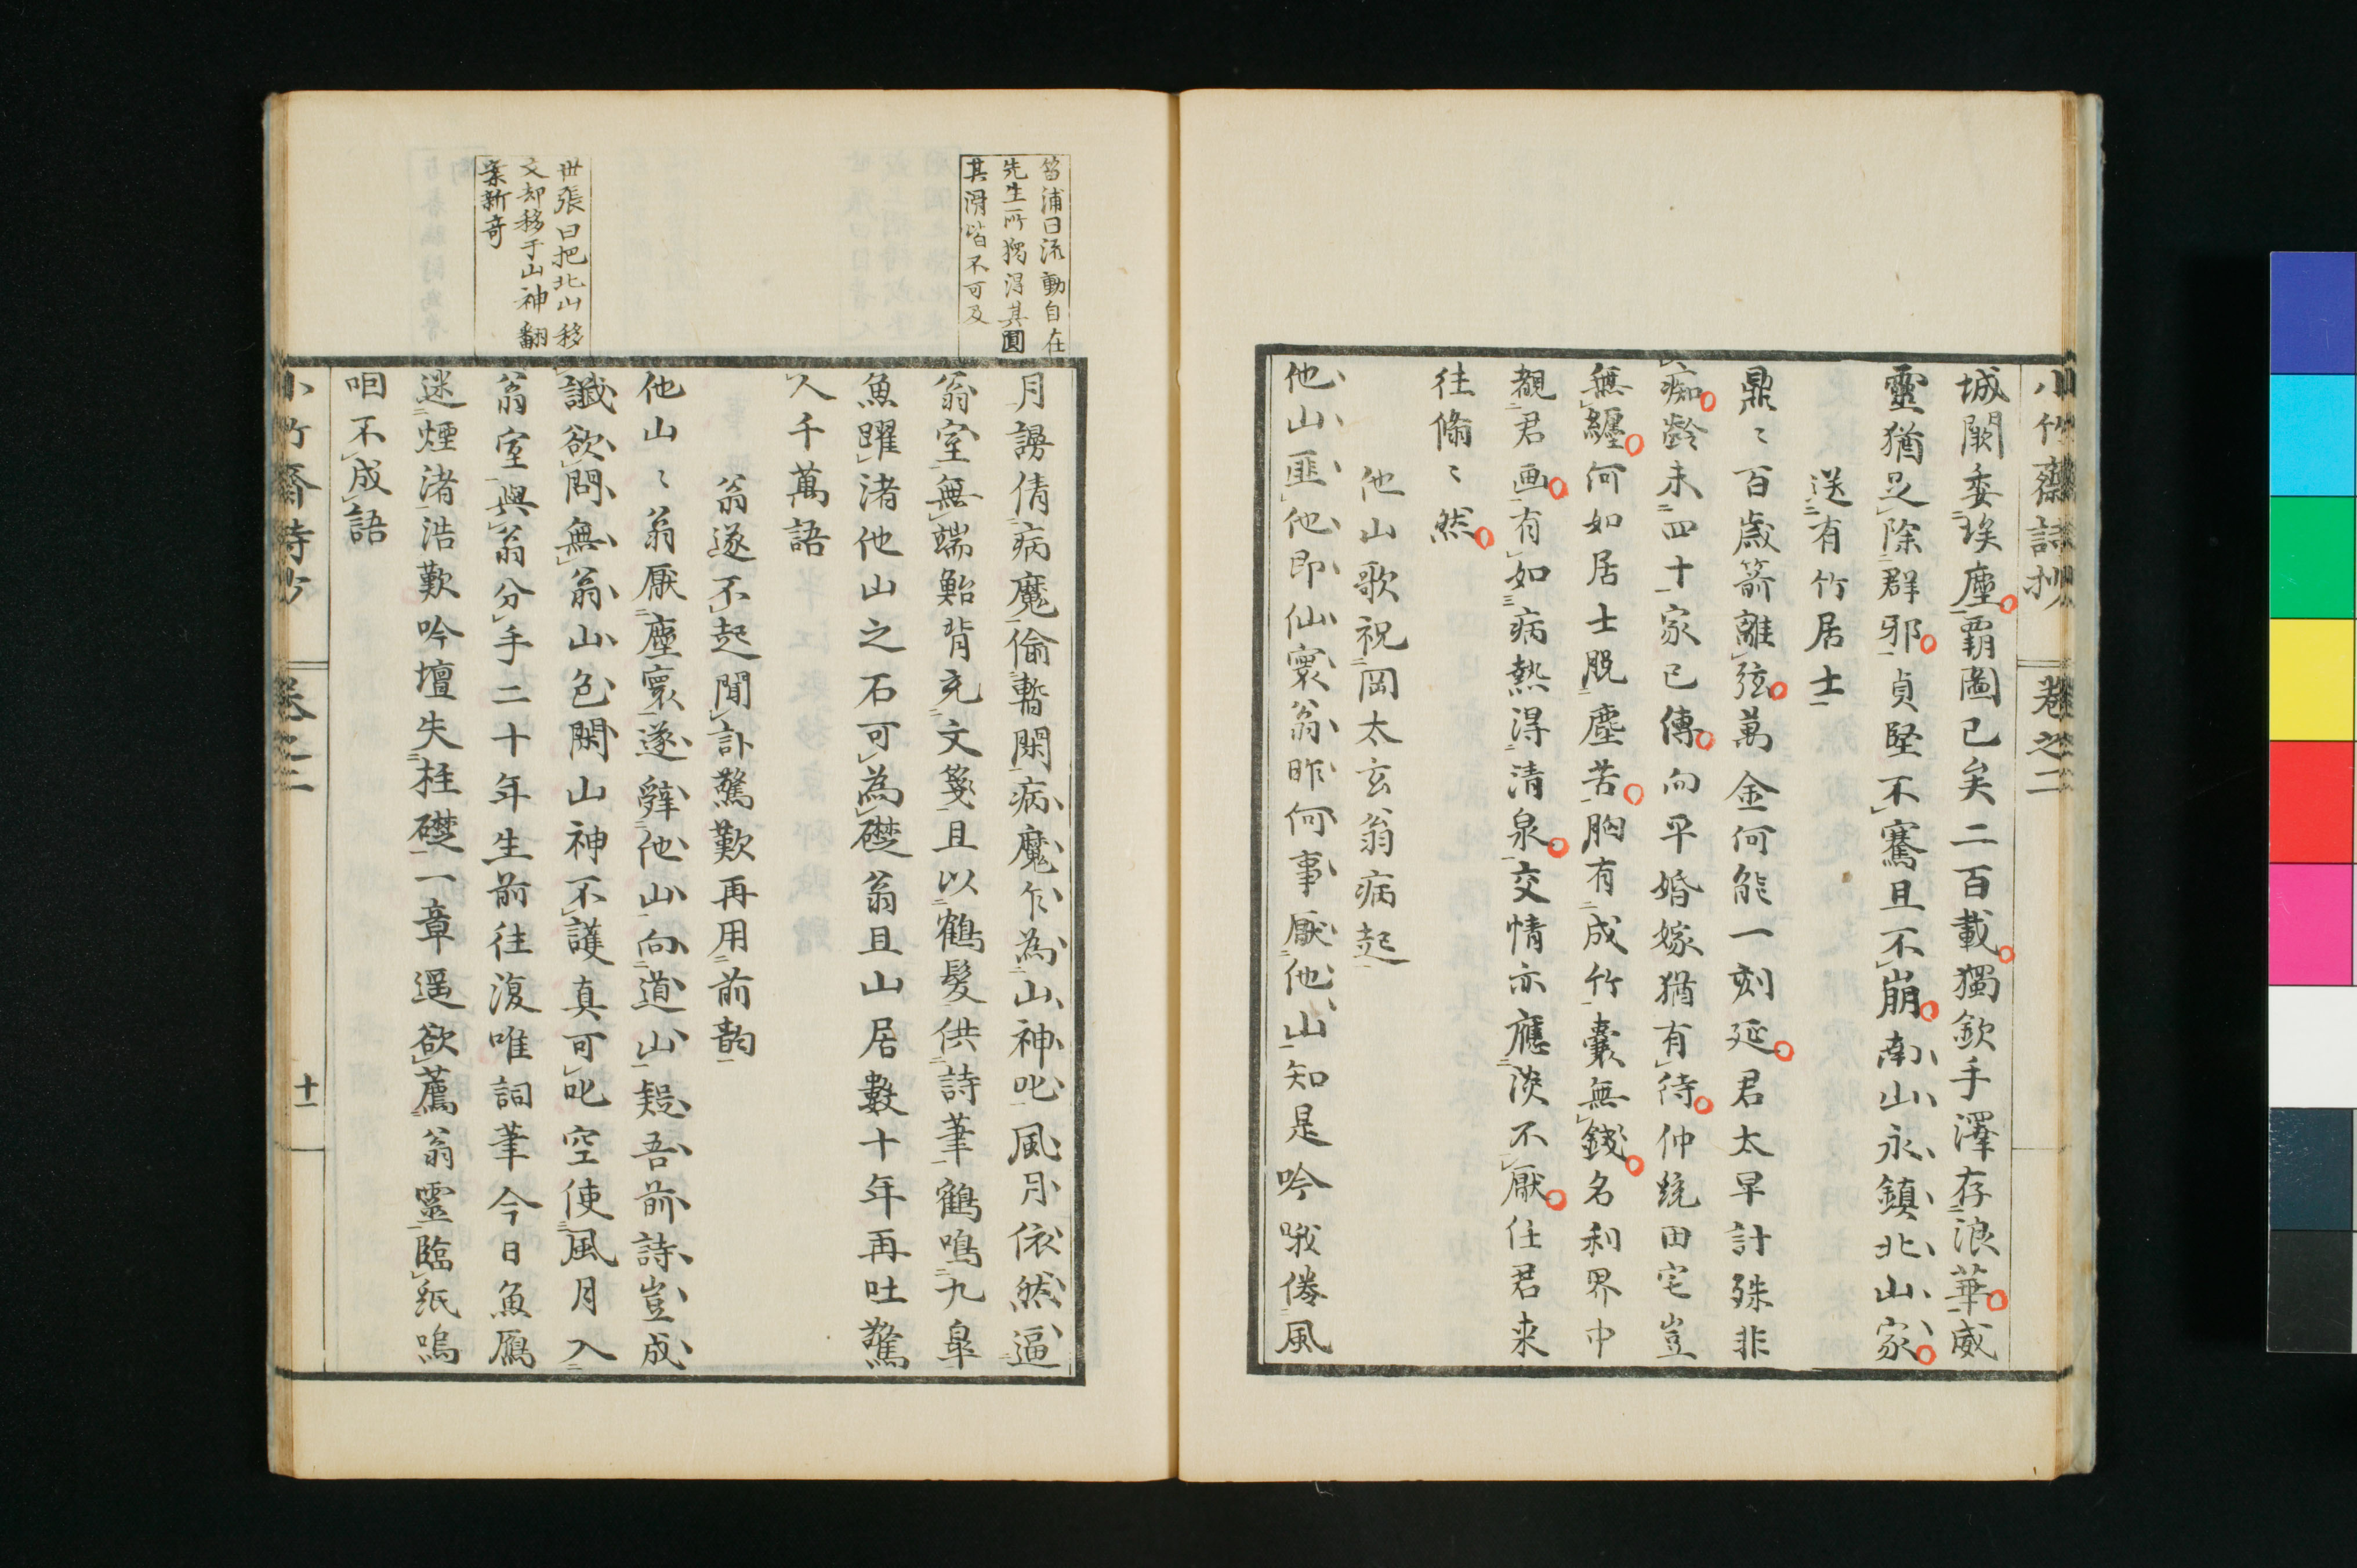 小竹齋詩抄 卷之二
城闕委埃塵覇圖已矣二百載獨欽手澤存浪華威
靈猶足除群邪貞堅不騫且不崩南山永鎮北山家
送有竹居士
鼎〻百歲箭離弦萬金何能一刻延君太早計殊非
痴齡未四十家已傳向平婚嫁猶有待仲統田宅豈
無纏何如居士脫塵苦胸有成竹囊無錢名利界中
覩君画有如病熱淂清泉交情亦應淡不厭任君来
往翛〻然
他山歌祝岡太玄翁病起
他山匪他即仙寰翁昨何事厭他山知是吟哦倦風
月謾倩病魔偷暫閑病魔乍為山神叱風月依然逼
翁室無端鮐背充文箋且以鶴髮供詩筆鶴鳴九皐
魚躍渚他山之石可為礎翁且山居數十年再吐驚
人千萬語
翁遂不起聞訃驚歎再用前韵
他山〻翁厭塵寰遂辭他山向道山疑吾前詩豈成
讖欲問無翁山色閑山神不護真可叱空使風月入
翁室與翁分手二十年生前往復唯詞筆今日魚鴈
迷煙渚浩歎吟壇失柱礎一章遥欲薦翁靈臨紙嗚
咽不成語
小竹齋詩抄 卷之二 十一
笛浦曰流動自在
先生所獨淂其圓
其滑皆不可及
世張曰把北山移
文却移于山神翻
案新奇